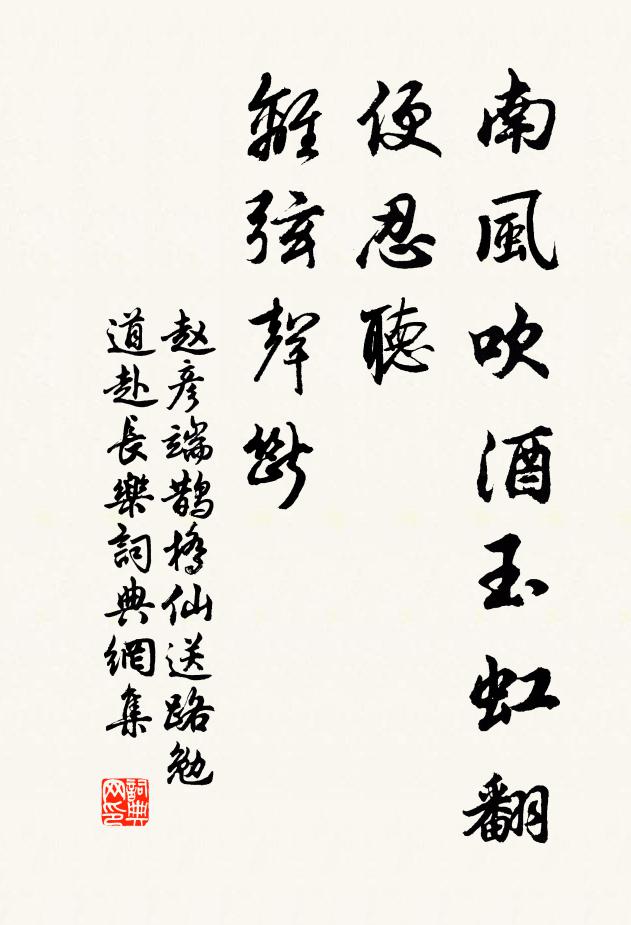 南風吹酒玉虹翻
便忍聽
離弦聲斷
赵彥端鵲橋仙送路勉
道赴長樂詞典網集
詞典网印